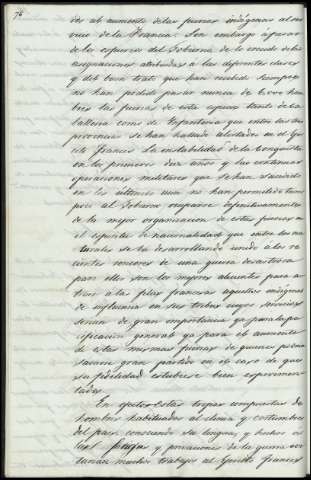 76
dos al aumento de las fuerzas indígenas al ser
vicio de la Francia. Sin embargo á pesar
de los esfuerzos del Gobierno, de lo crecido de las
asignaciones atribuidas á las diferentes clases
y del buen trato que han recibido siempre
no han podido pasar nunca de 6.000 hom
bres las fuerzas de esta especie tanto de Ca
balleria como de Infanteria que entre las tres
provincias se han hallado alistados en el Ejer
cito Francés. La instabilidad de la Conquista
en los primeros diez años y las continuas
operaciones militares que se han sucedido
en los últimos no han permitido tam
poco al Gobierno ocuparse definitivamente
de la mejor organizacion de estas fuerzas
el espiritu de nacionalidad que entre los na
turales se ha desarrollado unido a los re
cientes rencores de una guerra desastrosa
para ellos son los mejores alicientes para a
traer á las filas francesas aquellos indígenas
de influencia en sus tribus cuyos servicios
serian de gran importancia ya para la pa
cificacion general ya para el aumento
de estas mismas fuerzas de quienes podria
sacarse gran partido en el caso de que
su fidelidad estubiese bien experimen
tada.
En efecto estas tropas compuestas de
hombres habituados al clima y costumbres
del pais, conociendo su lengua, y hechos á
las fatigas y privaciones de la guerra ahor
rarian muchos trabajos al Ejercito Francés